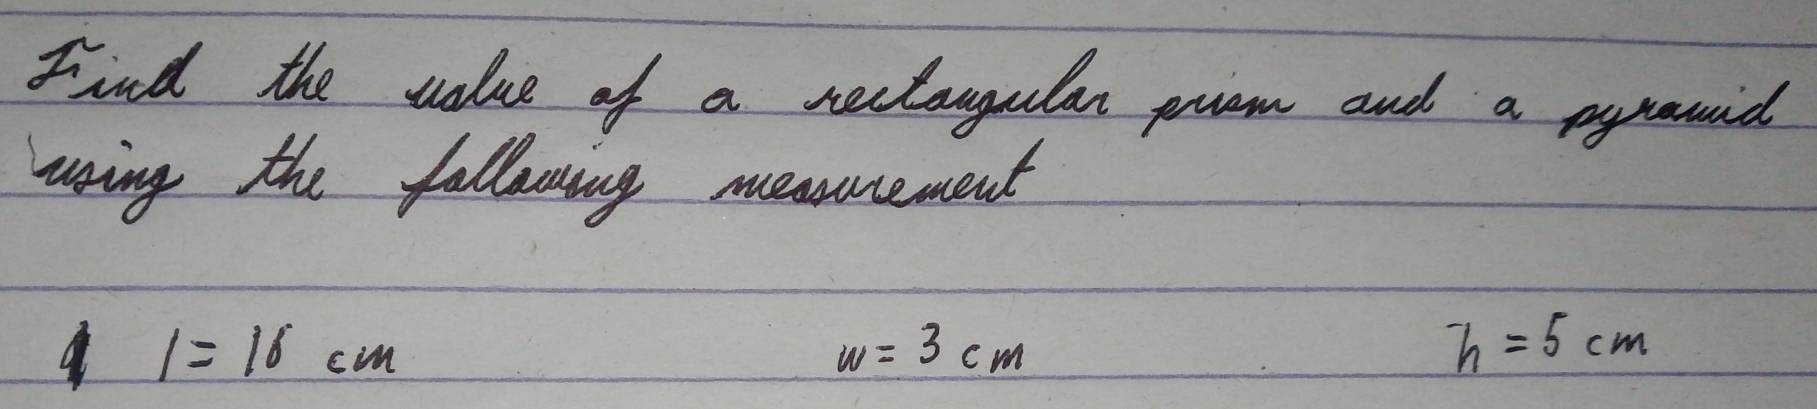 Find the value of a rectangular prism and a pyramid
using the following measurement
1 l = 16 cm w = 3 cm h = 5 cm